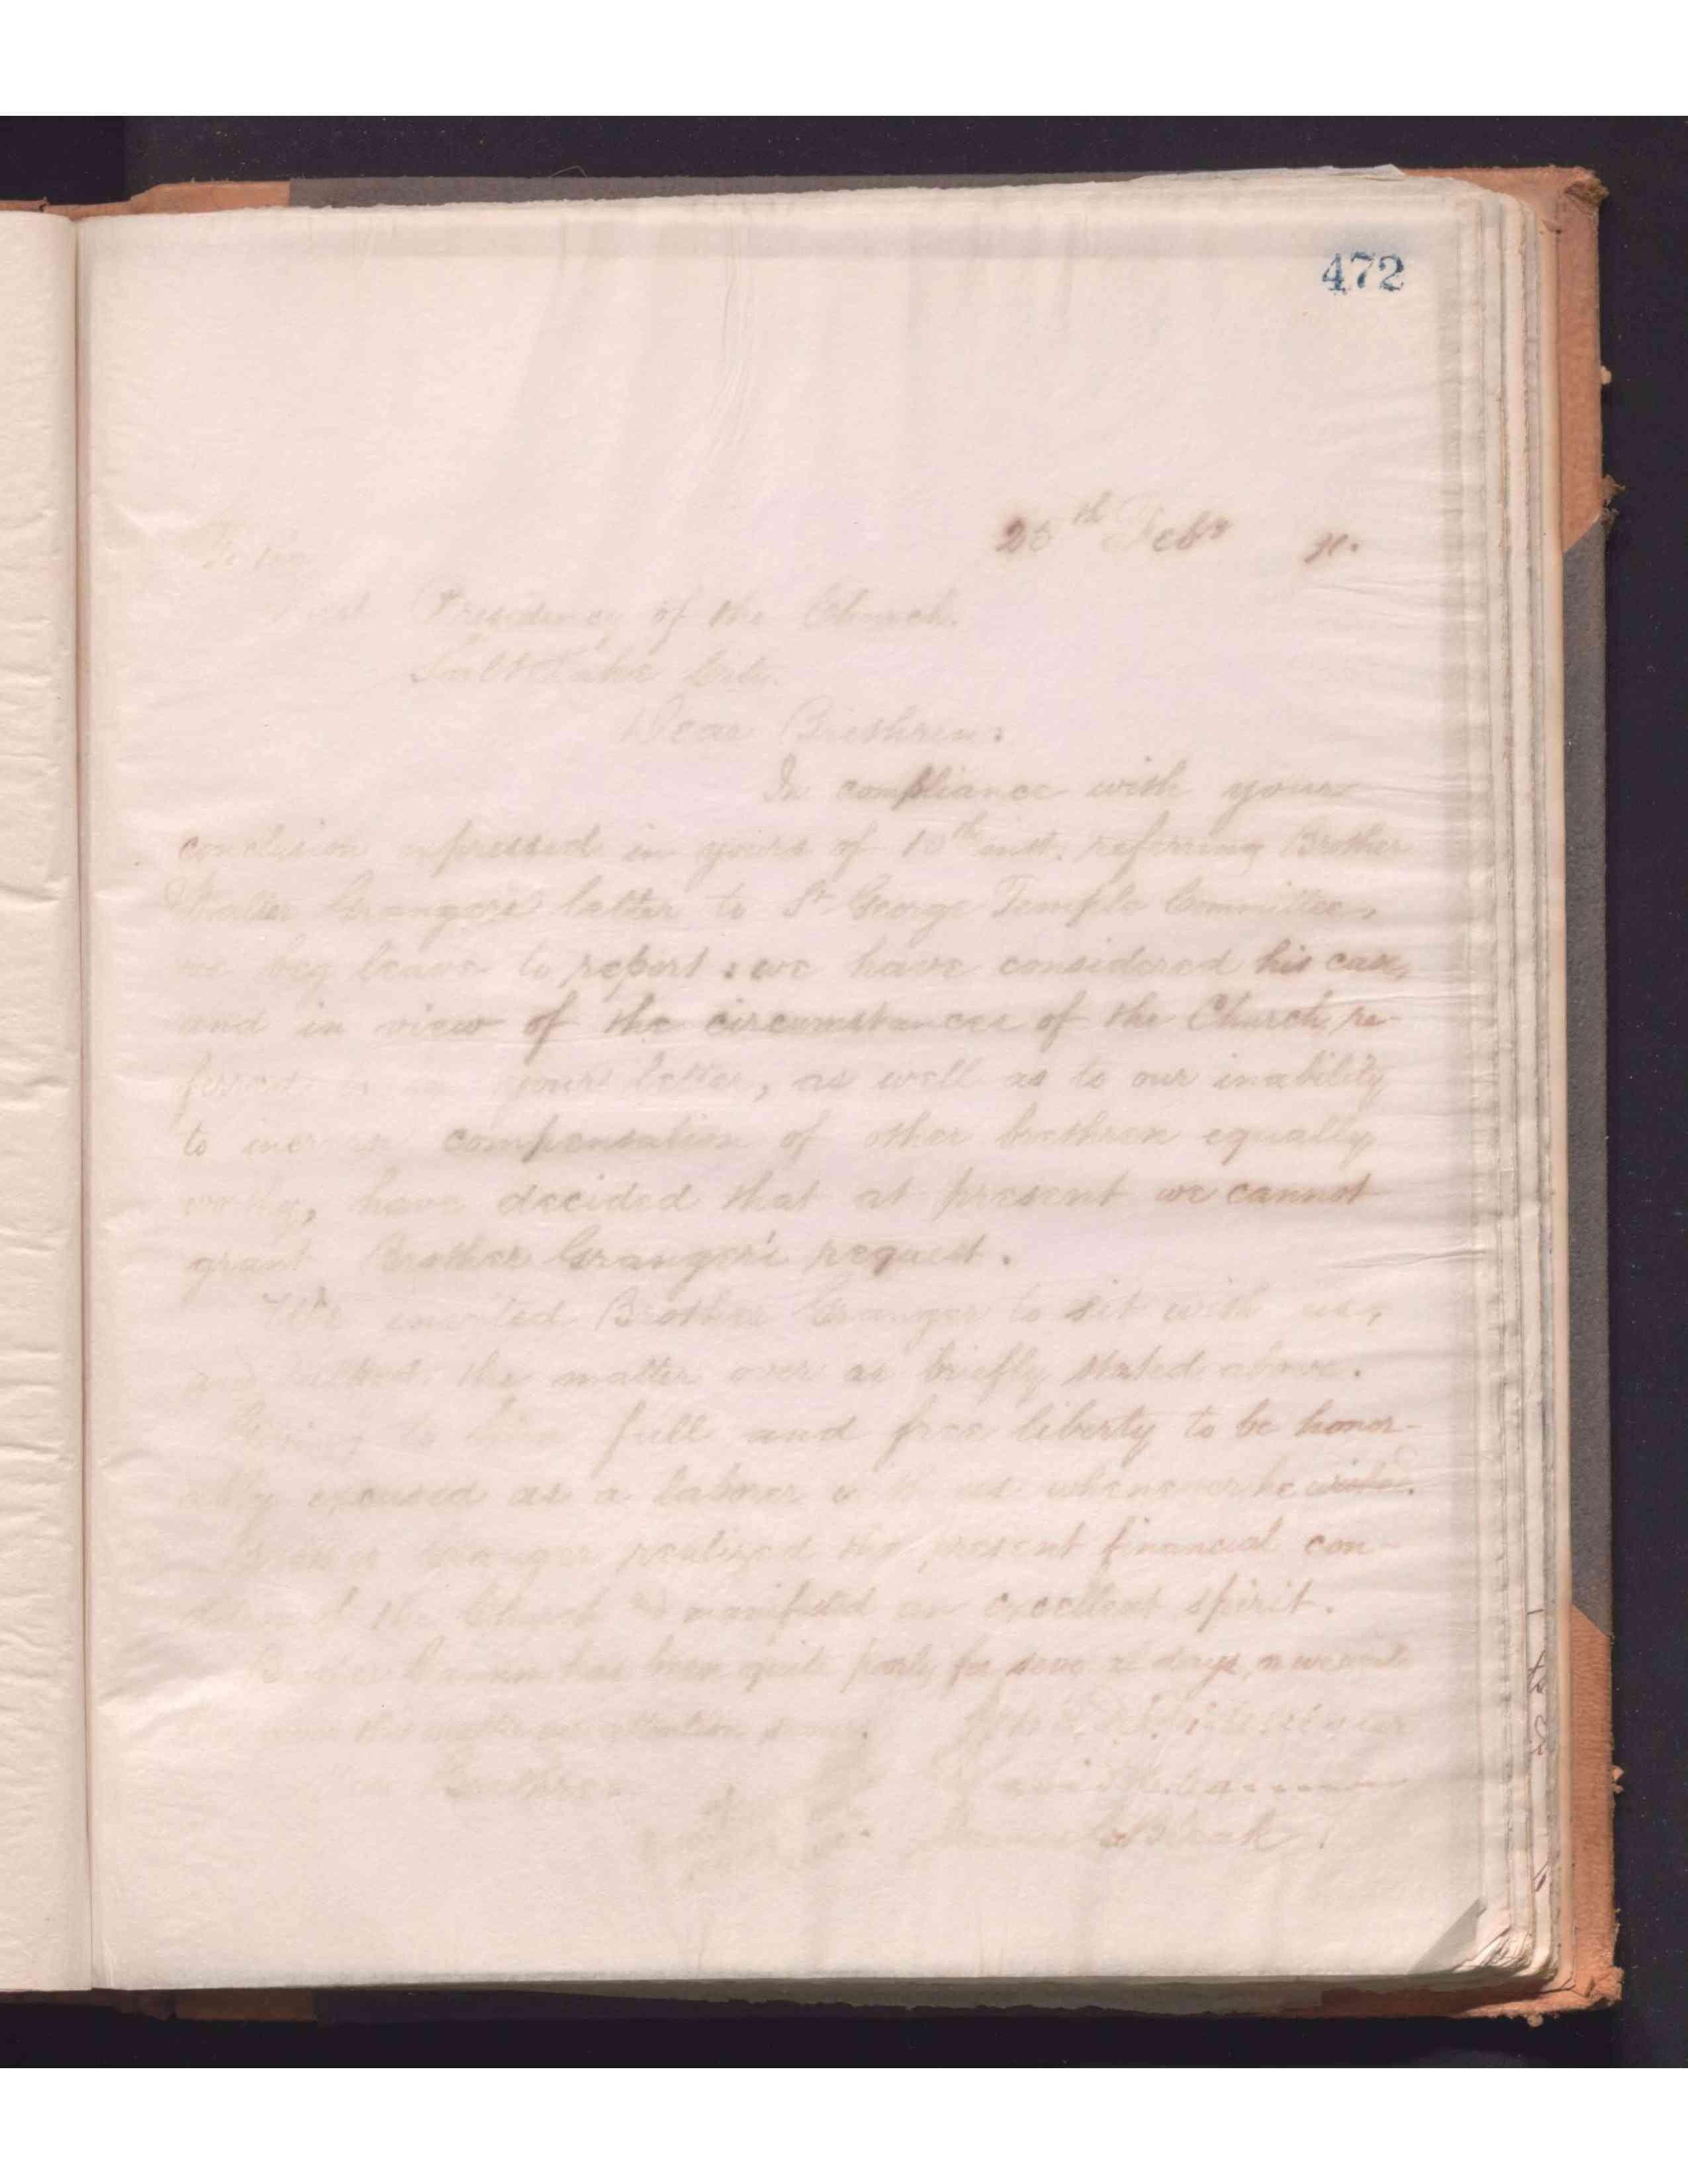 472
25th Feby 91.
To the
First Presidency of the Church.
Salt Lake City.
Dear Brethren:
In compliance with your
conclusion expressed in yours of 10th inst. referring Brother
Walter Granger's letter to St George Temple Committee,
we beg leave to report: we have considered his case,
and in view of the circumstances of the Church re-
ferred to in your letter, as well as to our inability
to increase compensation of other brethren equally
worthy, have decided that at present we cannot
grant Brother Granger's request.
We invited Brother Granger to sit with us,
and talked the matter over as briefly stated above.
Giving to him full and free liberty to be honor-
ably excused as a laborer with us whenever he wishes.
Brother Granger realized the present financial con-
dition of the Church & manifested an excellent spirit.
Brother Cannon has been quite poorly for several days, or we would
have given this matter our attention sooner.
Your Brethren
David H. Cannon